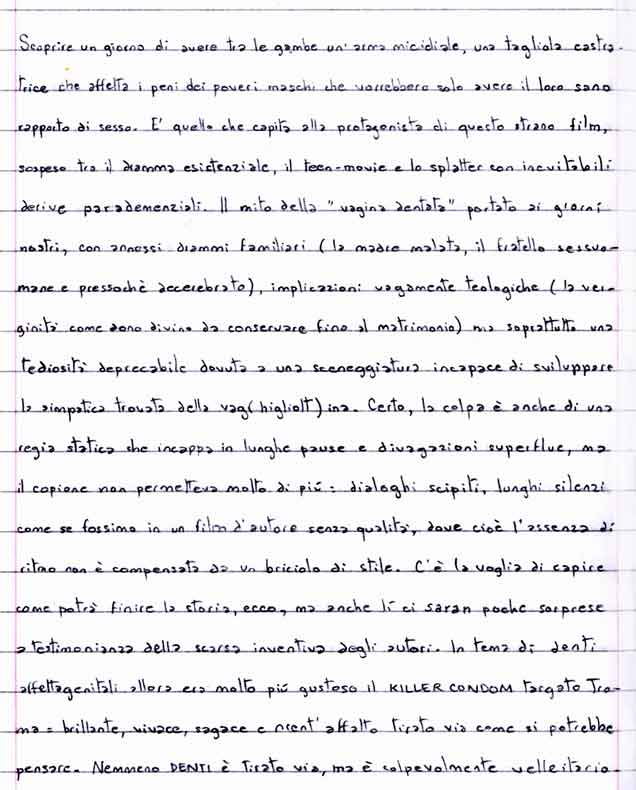 Scoprire un giorno di avere tra le gambe un'arma micidiale, una tagliola castra-
trice che affetta i peni dei poveri maschi che vorrebbero solo avere il loro sano
rapporto di sesso. E' quello che capita alla protagonista di questo strano film,
sospeso tra il dramma esistenziale, il teen-movie e lo splatter con inevitabili
derive parademenziali. Il mito della "vagina dentata" portato ai giorni
nostri, con annessi drammi familiari (la madre malata, il fratello sessuo-
mane e pressochè decerebrato), implicazioni vagamente teologiche (la ver-
ginità come dono divino da conservare fino al matrimonio) ma soprattutto una
tediosità deprecabile dovuta a una sceneggiatura incapace di sviluppare
la simpatica trovata della vag(higliott)ina. Certo, la colpa è anche di una
regia statica che incappa in lunghe pause e divagazioni superflue, ma
il copione non permetteva molto di più: dialoghi scipiti, lunghi silenzi
come se fossimo in un film d'autore senza qualità, dove cioè l'assenza di
ritmo non è compensata da un briciolo di stile. C'è la voglia di capire
come potrà finire la storia, ecco, ma anche lì ci saran poche sorprese
a testimonianza della scarsa inventiva degli autori. In tema di denti
affettagenitali allora era molto più gustoso il KILLER CONDOM targato Tro-
ma: brillante, vivace, sagace e nient'affatto tirato via come si potrebbe
pensare. Nemmeno DENTI è tirato via, ma è colpevolmente velleitario.